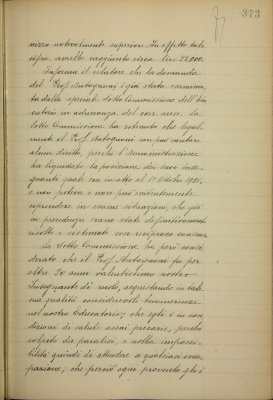 373
mezzo notevolmente superiore. In effetto tale
cifra avrebbe raggiunto circa lire 22.000.
Informa il relatore che la domanda
del Prof. Antognoni è già stata esamina-
ta dalla speciale Sotto Commissione dell'E
in adunanza del corr. mese. La
Sotto Commissione ha ritenuto che legal-
mente il Prof. Antognoni non può vantare
alcun diritto, perché l'Amministrazione
ha liquidato la posizione dei suoi inse-
gnanti quale era in atto al 1º Ottobre
e non poteva e non può evidentemente
riprendere in esame situazioni, che già
in precedenza erano state definitivamente
risolte e sistemate con reciproco consenso.
La Sotto Commissione ha però consi-
derato che il Prof. Antognoni fu per
oltre 20 anni valentissimo nostro
Insegnante di ruolo, acquistando in tale
sua qualità considerevoli benemerenze
nel nostro Educatorio; che egli è in con-
dizioni di salute assai precarie, perché
colpito da paralisi, e nella impossi-
bilità quindi di attendere a qualsiasi occu-
pazione; che perciò ogni provento gli è